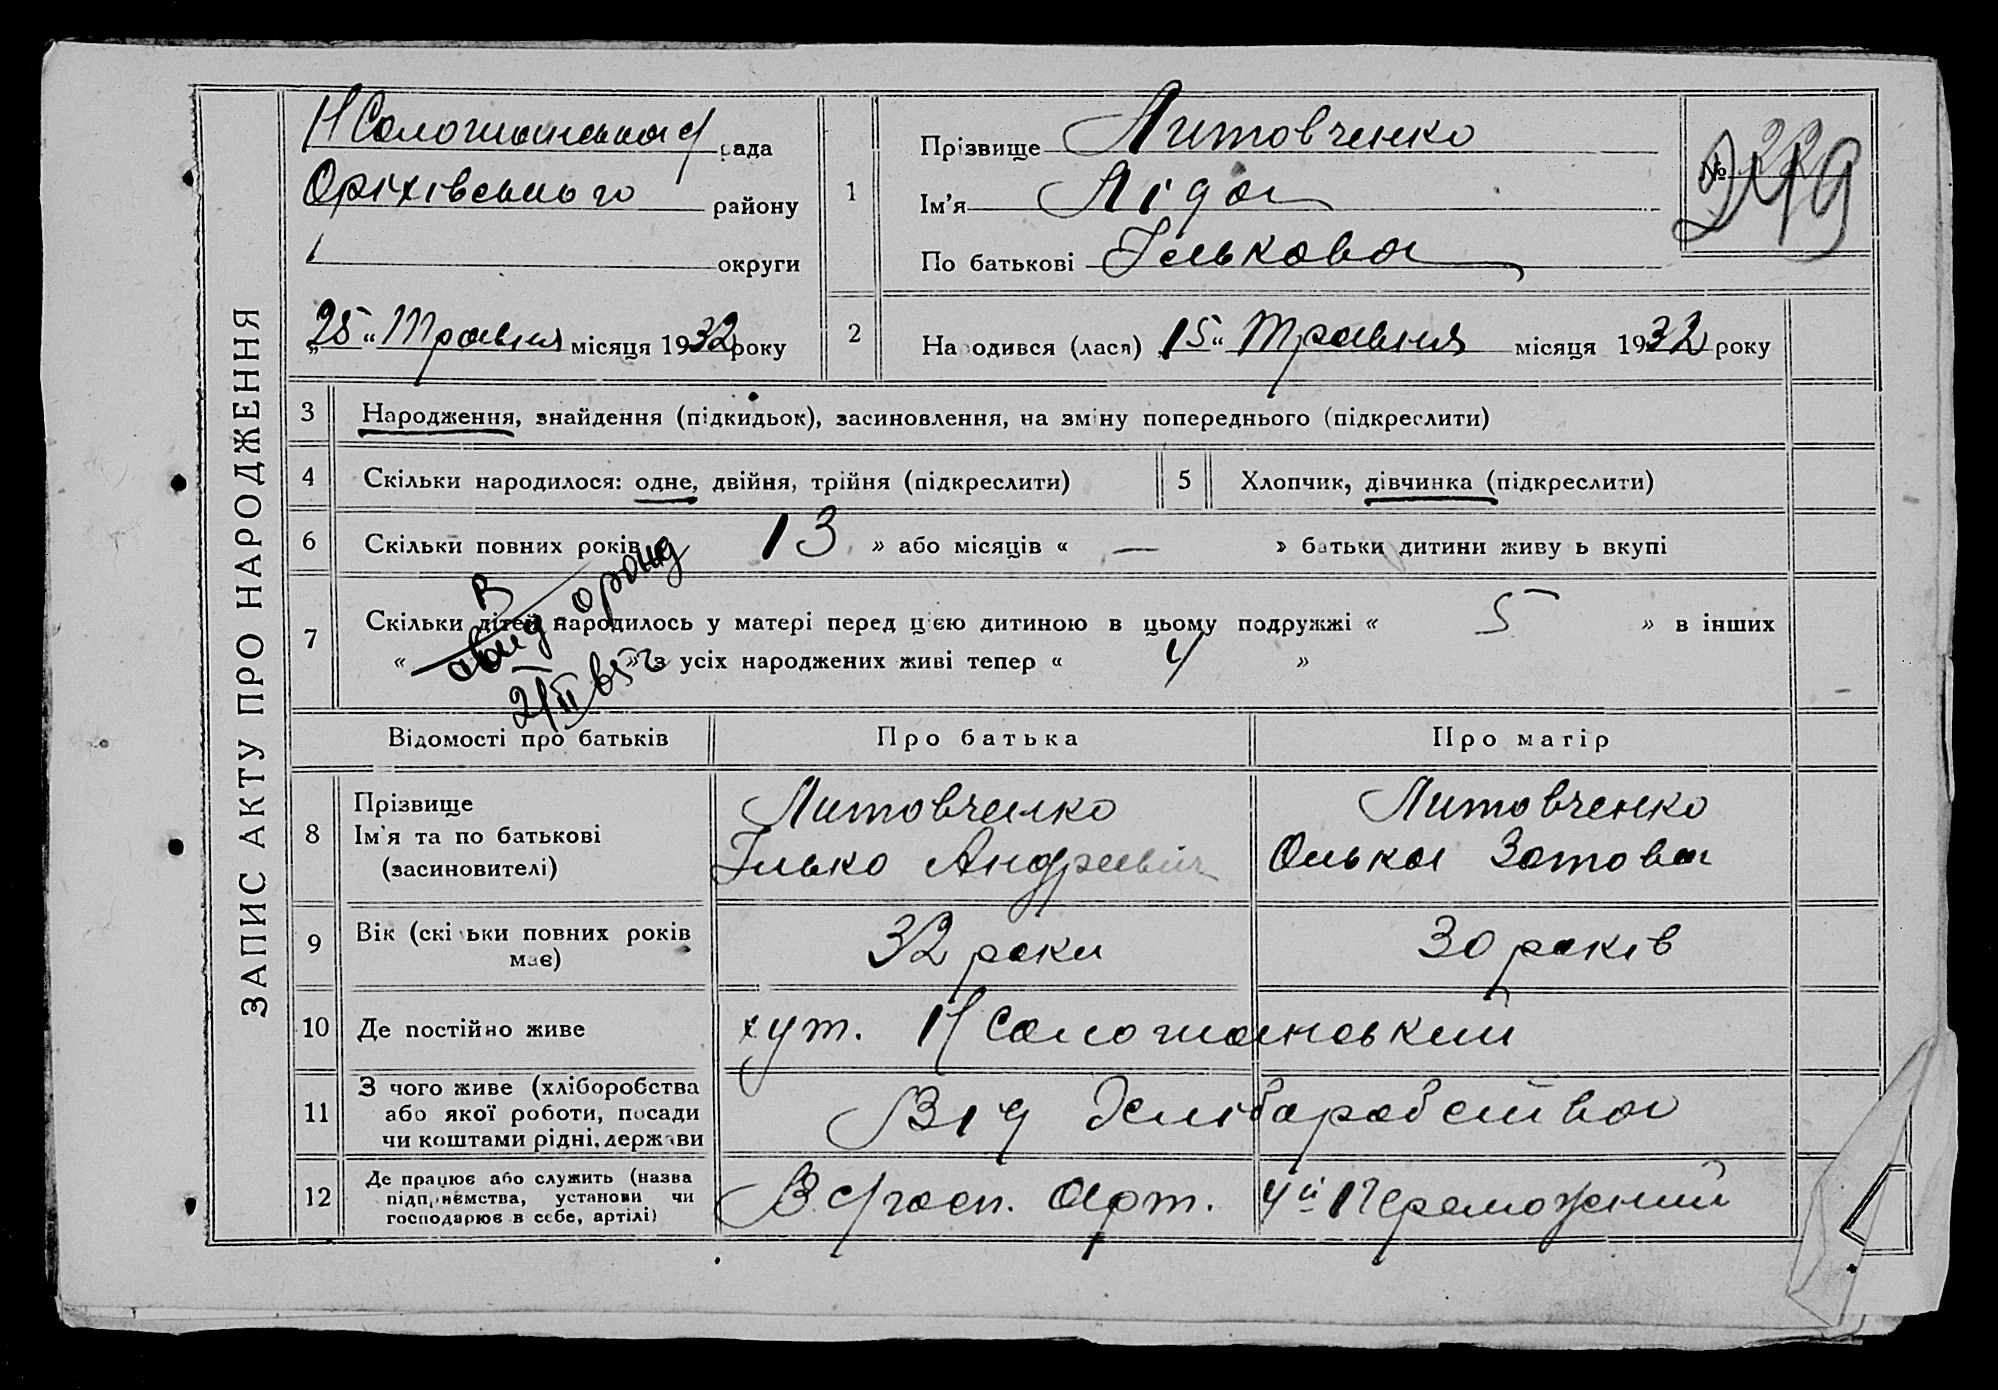 ЗАПИС АКТУ ПРО НАРОДЖЕННЯ
рада
Оріхівського району
округи
„25“ Травня місяця 1932 року
1
Прізвище Литовченко
Ім'я Ліда
По батькові Ількова
№
2
Народився (лася) 15“ Травня місяця 1932 року
3 Народження, знайдення (підкидьок), засиновлення, на зміну попереднього (підкреслити)
4 Скільки народилося: одне, двійня, трійня (підкреслити)
5 Хлопчик, дівчинка (підкреслити)
6 Скільки повних років 13 » або місяців « — » батьки дитини живуть вкупі
7 Скільки дітей народилось у матері перед цією дитиною в цьому подружжі « 5 » в інших
« » з усіх народжених живі тепер « 4 »
Відомості про батьків Про батька Про матір
8 Прізвище
Ім'я та по батькові
(засиновителі)
Литовченко
Ілько Андрєевіч
Литовченко
Олька Зотова
9 Вік (скільки повних років
має)
32 роки
30 років
10 Де постійно живе
хут. Н Солошановский
11 З чого живе (хліборобства
або якої роботи, посади
чи коштами рідні, держави
Від
12 Де працює або служить (назва
підприємства, установи чи
господарює в себе, артілі)
В с/госп. Арт.